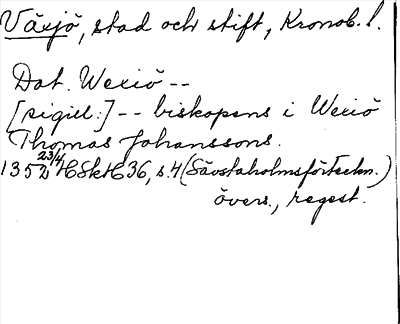 Växjö, stad och stift, Kronob. l.
Dat. Wexiö --
[sigill:] -- biskopens i Wexiö
Thomas Johanssons.
1352 23/4 HSkH 36, s. 4 (Sävstaholmsförteckn.)
övers., regest.